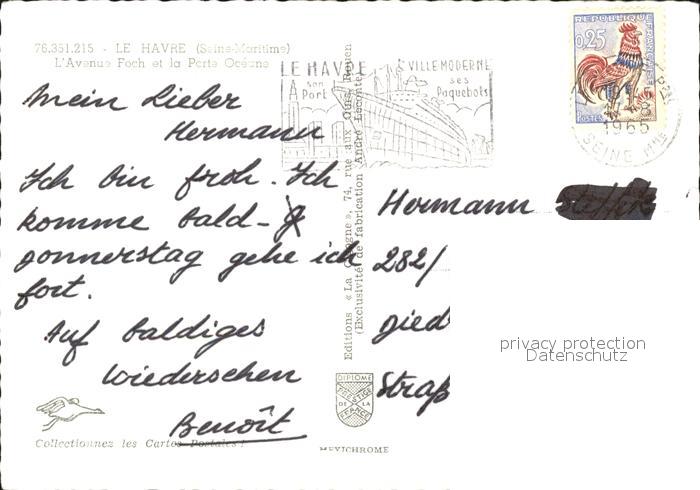 76.351.215 - LE HAVRE (Seine-Maritime)
L'Avenue Foch et la Porte Océane
LE HAVRE
son
Port
VILLE MODERNE
ses
Paquebots
REPUBLIQUE FRANÇAISE
0,25
POSTES
1965
SEINE Mme
Mein Lieber
Hermann
Ich bin froh. Ich
komme bald-
donnerstag gehe ich
fort.
Auf baldiges
Wiedersehen
Benoît
Hermann
282/
gied
Straß
Editions « La Cigogne », 74, rue aux Ours, Rouen
(Exclusivité de fabrication André Leconte)
privacy protection
Datenschutz
DIPLOME
PRESTIGE
DE LA
FRANCE
Collectionnez les Cartes Postales !
MEXICHROME